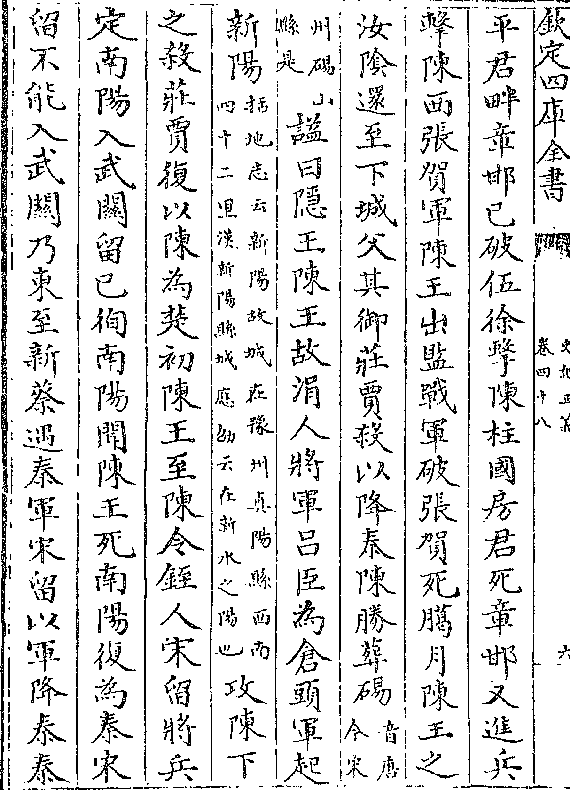 欽定四庫全書
史記正義
卷四十八
六
平君畔章邯已破伍徐擊陳柱國房君死章邯又進兵
擊陳西張賀軍陳王出監戰軍破張賀死臘月陳王之
汝隂還至下城父其御莊賈殺以降秦陳勝葬碭音唐今宋
州碭山縣是諡曰隠王陳王故涓人將軍吕臣為倉頭軍起
新陽括地志云新陽故城在豫州真陽縣西南四十二里漢新陽縣城應劭云在新水之陽也攻陳下
之殺莊賈復以陳為楚初陳王至陳令銍人宋留將兵
定南陽入武關留已徇南陽聞陳王死南陽復為秦宋
留不能入武關乃東至新蔡遇秦軍宋留以軍降秦秦